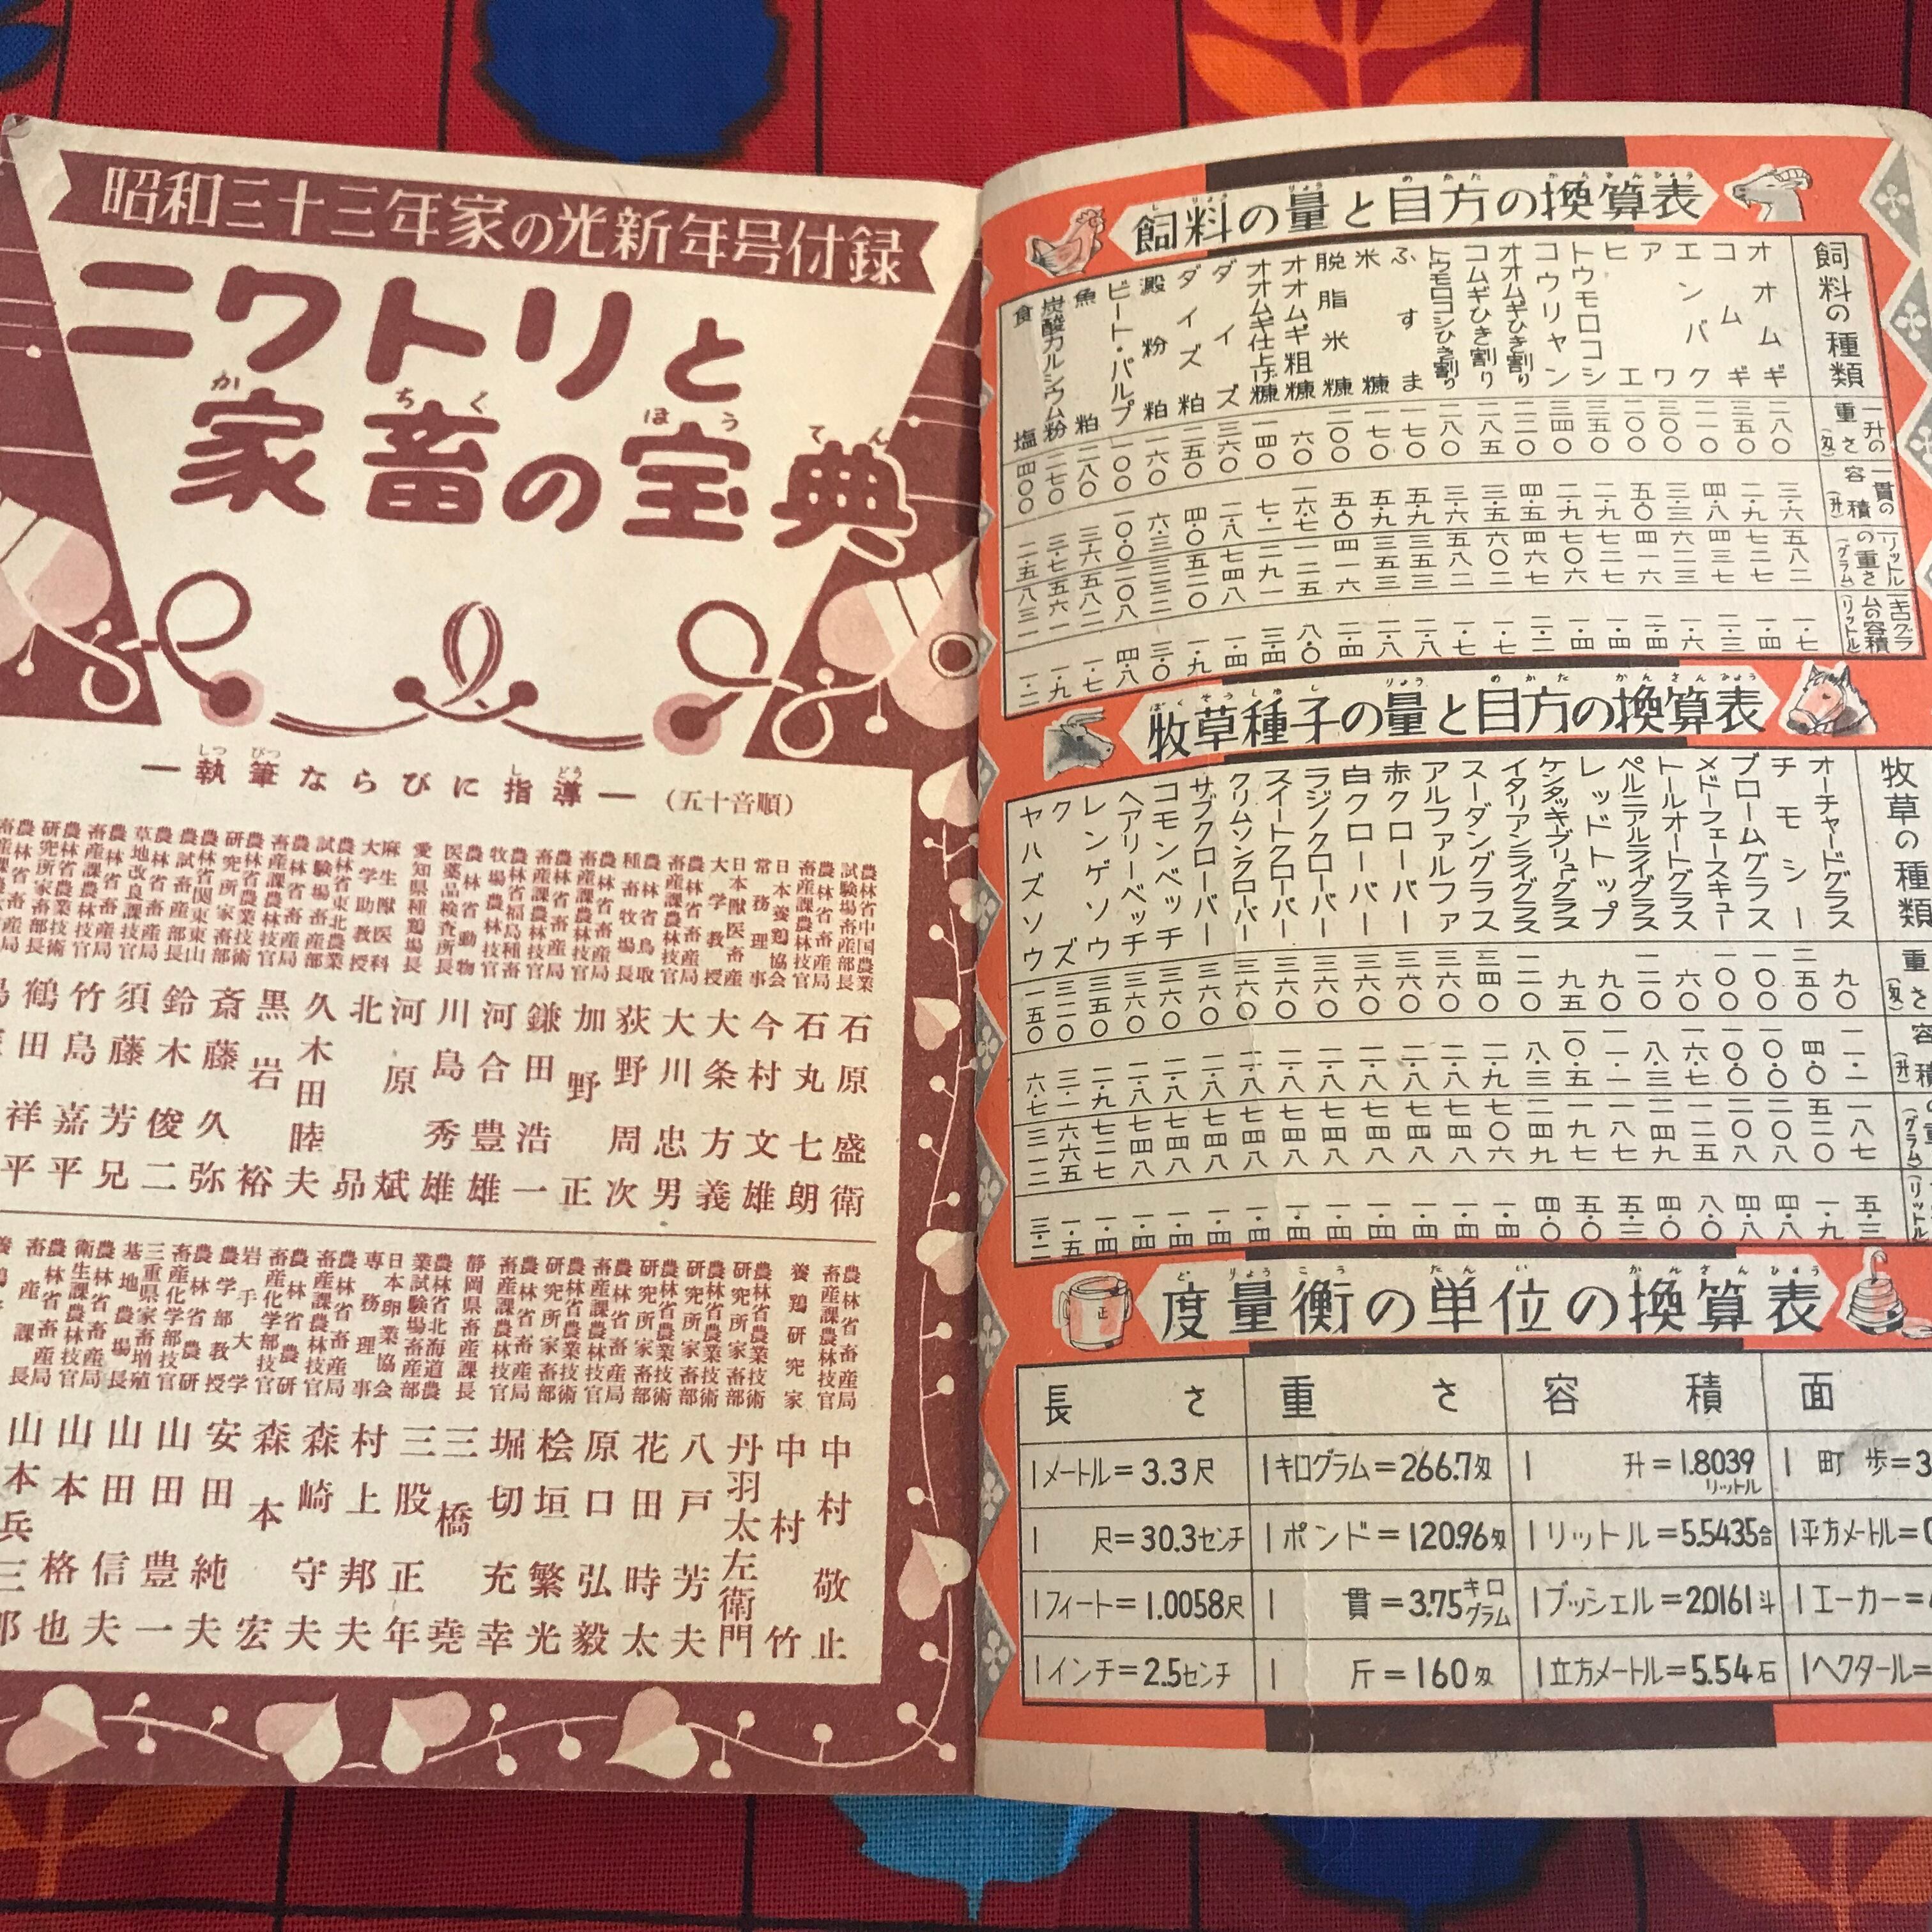 昭和三十三年家の光新年号付録
ニワトリと
家畜の宝典
か ちく ほう てん
―執筆ならびに指導―(五十音順)
しつ ぴつ し どう
農林省中国農業試験場畜産部長 石原盛衛
農林省畜産局畜産課農林技官 石丸七朗
日本養鶏協会常務理事 今村文雄
日本獣医畜産大学教授 大条方義
農林省畜産局畜産課農林技官 大川忠男
農林省鳥取種畜牧場長 荻野周次
農林省畜産局畜産課農林技官 加野正
農林省畜産局畜産課農林技官 鎌田浩一
農林省福島種畜牧場農林技官 河合豊雄
農林省動物医薬品検査所長 川島秀雄
愛知県種鶏場長 河原斌
麻生獣医科大学助教授 北昴
農林省東北農業試験場畜産部 久木田睦夫
農林省畜産局畜産課農林技官 黒岩裕
農林省農業技術研究所家畜部 斎藤久弥
農林省関東東山農試畜産部長 鈴木俊二
農林省畜産局草地改良課 須藤芳兄
農林省畜産局畜産課農林技官 竹島嘉平
農林省農業技術研究所家畜部長 鶴田祥平
農林省畜産局畜産課農林技官 中村敬止
養鶏研究家 中村竹
農林省農業技術研究所家畜部 丹羽太左衛門
農林省農業技術研究所家畜部 八戸芳夫
農林省農業技術研究所家畜部 花田時太
農林省畜産局畜産課農林技官 原口弘毅
農林省農業技術研究所家畜部 桧垣繁光
農林省畜産局畜産課農林技官 堀切充幸
静岡県畜産課長 三橋堯
農林省北海道農業試験場畜産部 三股正年
日本卵業協会専務理事 村上邦夫
農林省畜産局畜産課農林技官 森崎守夫
農林省農研畜産化学部技官 森本宏
岩手大学農学部教授 安田純夫
農林省農研畜産化学部技官 山田豊一
三重県家畜増殖基地農場長 山田信夫
農林省畜産局衛生課農林技官 山本格也
農林省畜産局畜産課長 山本兵三郎
飼料の量と目方の換算表
飼料の種類 一升の重さ(匁) 一貫の容積(升) 一リットルの重さ(グラム) 一キログラムの容積(リットル)
オオムギ 二八〇 三・六 五八二 一・七
コムギ 三五〇 二・九 七二七 一・四
エンバク 二一〇 四・八 四三七 二・三
アワ 三〇〇 三・三 六二三 一・六
ヒエ 二〇〇 五・〇 四一六 二・四
トウモロコシ 三五〇 二・九 七二七 一・四
コウリャン 三四〇 二・九 七〇六 一・四
オオムギひき割り 二二〇 四・五 四六七 二・二
コムギひき割り 二八五 三・五 六〇二 一・七
トウモロコシひき割り 二八〇 三・六 五八二 一・七
ふすま 一七〇 五・九 三五三 二・八
米糠 一七〇 五・九 三五三 二・八
脱脂米糠 二〇〇 五・〇 四一六 二・四
オオムギ粗糠 六〇 一六・七 一二五 八・〇
オオムギ仕上げ糠 一四〇 七・一 二九一 三・四
ダイズ 三六〇 二・八 七四八 一・四
ダイズ粕 二五〇 四・〇 五二〇 一・九
澱粉粕 一六〇 六・三 三三二 三・〇
ビート・パルプ 一〇〇 一〇・〇 二〇八 四・八
魚粕 二八〇 三・六 五八二 一・七
炭酸カルシウム粉 二七〇 三・七 五六一 一・九
食塩 四〇〇 二・五 八三一 一・二
牧草種子の量と目方の換算表
牧草の種類 重さ(匁) 容積(升) (グラム) (リットル)
オーチャードグラス 九〇 一一・一 一八七 五・三
チモシー 二五〇 四・〇 五二〇 一・九
ブロームグラス 一〇〇 一〇・〇 二〇八 四・八
メドーフェースキュー 一〇〇 一〇・〇 二〇八 四・八
トールオートグラス 六〇 一六・七 一二五 八・〇
ペルニアルライグラス 一二〇 八・三 二四九 四・〇
レッドトップ 九〇 一一・一 一八七 五・三
ケンタッキブリュグラス 九五 一〇・五 一九七 五・〇
イタリアンライグラス 一二〇 八・三 二四九 四・〇
スーダングラス 三四〇 二・九 七〇六 一・四
アルファルファ 三六〇 二・八 七四八 一・四
赤クローバー 三六〇 二・八 七四八 一・四
白クローバー 三六〇 二・八 七四八 一・四
ラジノクローバー 三六〇 二・八 七四八 一・四
スイートクローバー 三六〇 二・八 七四八 一・四
クリムソンクローバー 三六〇 二・八 七四八 一・四
サブクローバー 三六〇 二・八 七四八 一・四
コモンベッチ 三六〇 二・八 七四八 一・四
ヘアリーベッチ 三六〇 二・八 七四八 一・四
レンゲソウ 三五〇 二・九 七二七 一・四
クズ 三二〇 三・一 六六五 一・五
ヤハズソウ 一五〇 六・七 三一二 三・二
度量衡の単位の換算表
長さ 重さ 容積 面
1メートル=3.3尺 1キログラム=266.7匁 1升=1.8039リットル 1町歩=3
1尺=30.3センチ 1ポンド=120.96匁 1リットル=5.5435合 1平方メートル=0
1フィート=1.0058尺 1貫=3.75キログラム 1ブッシェル=2.0161斗 1エーカー=
1インチ=2.5センチ 1斤=160匁 1立方メートル=5.54石 1ヘクタール=